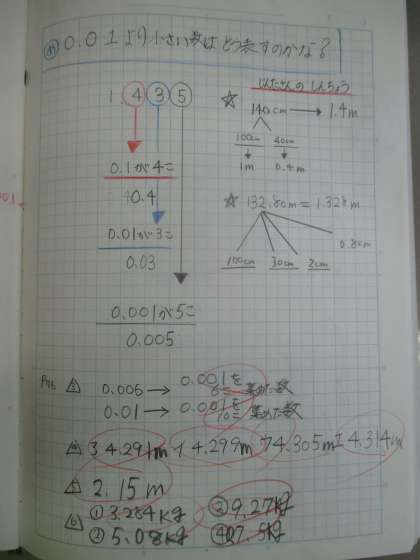 め 0.01より小さい数はどう表すのかな?
1.435
0.1が4こ
0.4
0.01が3こ
0.03
0.001が5こ
0.005
しんちょう
☆ 140cm → 1.4m
100cm 40cm
1m 0.4m
☆ 132.80m = 1.328m
100cm 30cm 2cm 0.8cm
P76 3 0.006 → 0.001を6こ集めた数
0.01 → 0.001を10こ集めた数
4 34.291m イ4.299m ウ4.305m エ4.314m
5 2.15m
6 ①3.284kg ③9.27kg
②5.08kg ④07.5kg